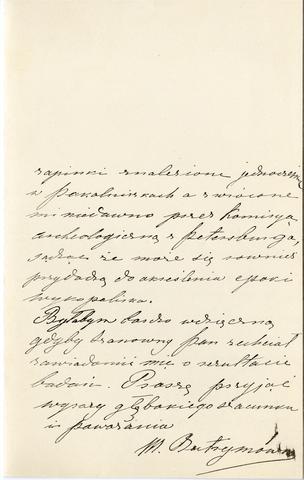 zapinki znalezione jednocześnie
w Pokalniszkach a zwrócone
mi niedawno przez komisyą
archeologiczną z Petersburga,
sądząc że może się również
przydadzą do określenia epoki
wykopaliska.
Byłabym bardzo wdzięczną
gdyby szanowny pan zechciał
zawiadomić mię o rezultacie
badań. Proszę przyjąć
wyrazy głębokiego szacunku
i poważania
M. Butrymówna